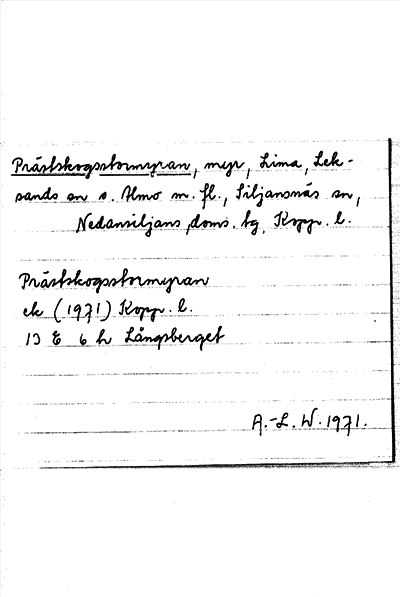 Prästskogsstormyran, myr, Lima, Lek-
sands sn o. Almo m. fl., Siljansnäs sn,
Nedansiljans doms. tg, Kopp. l.
Prästskogsstormyran
ek (1971) Kopp. l.
13 E 6 h Långsberget
A.-L. W. 1971.